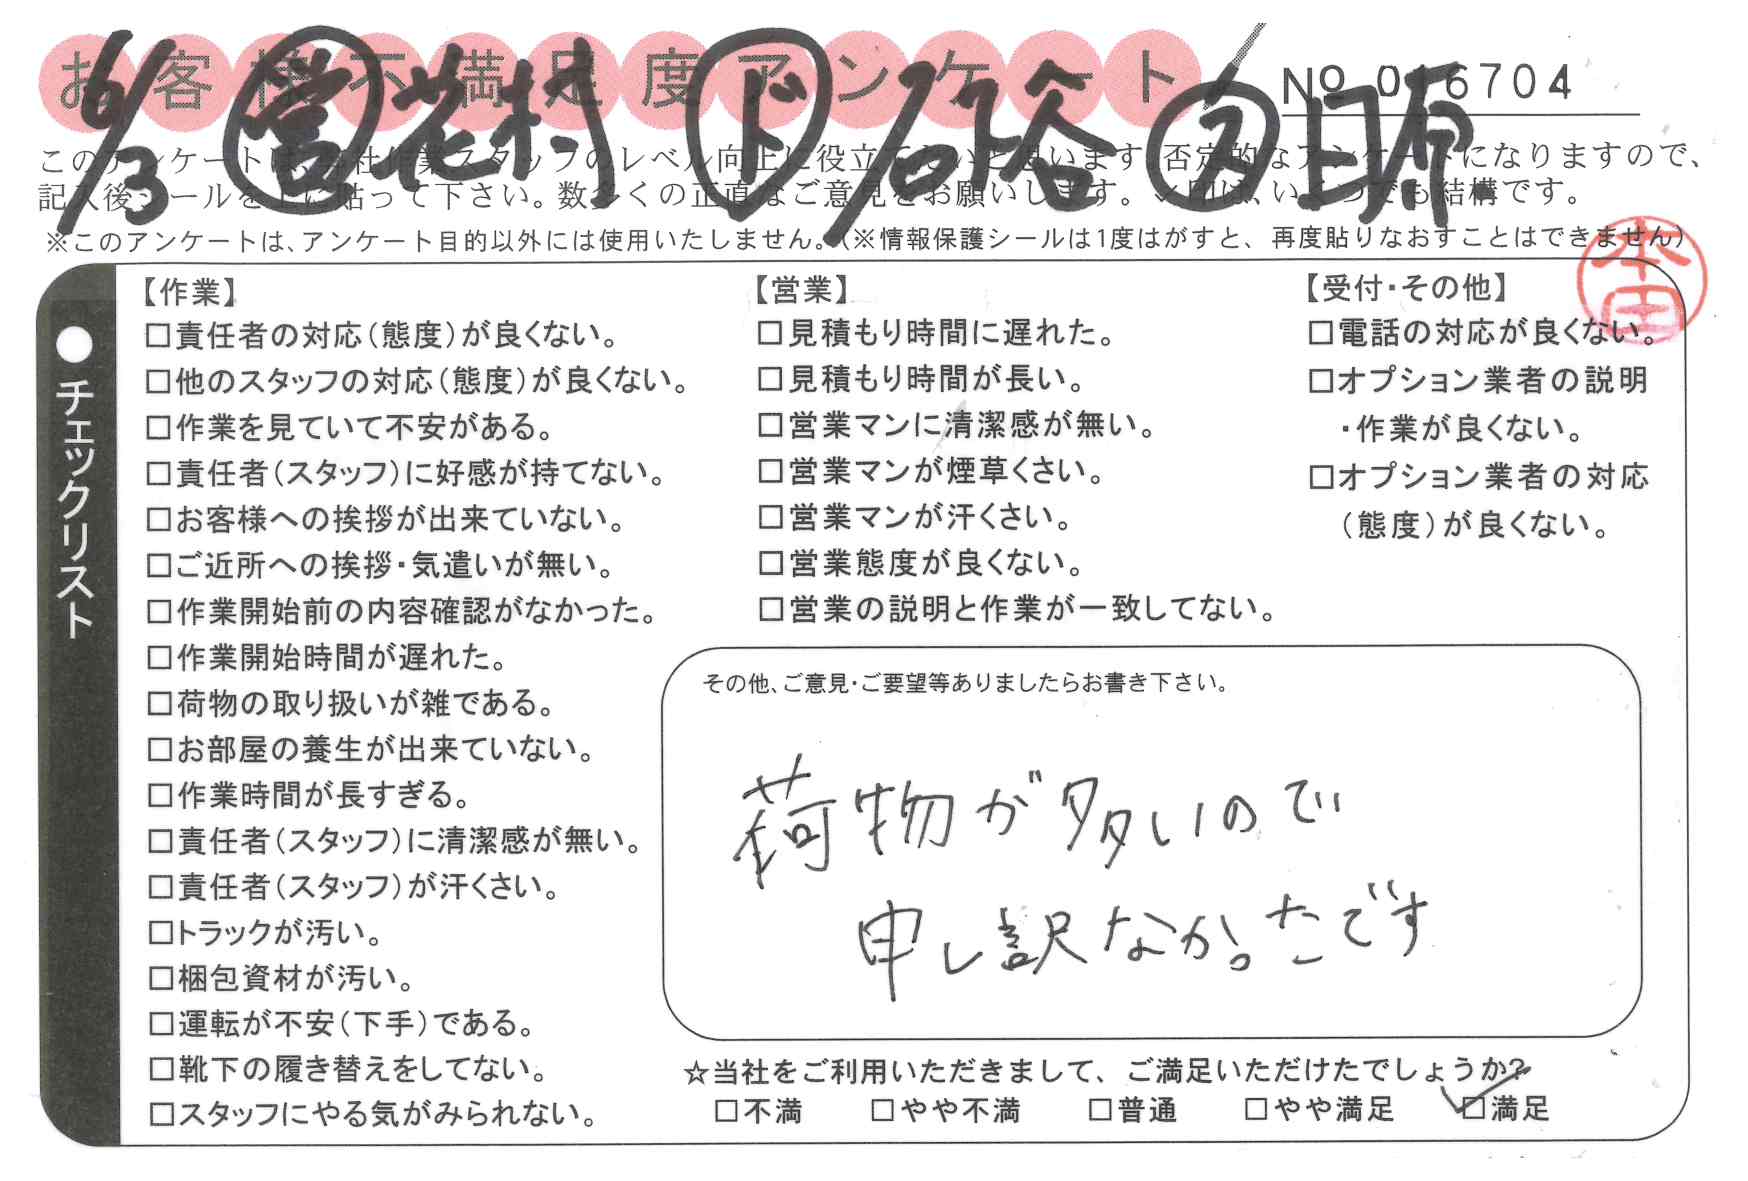 お客様不満足度アンケート
No 016704
6/3 営 花村 ド 石谷 ス 日原
このアンケートは、当社作業スタッフのレベル向上に役立てたいと思います。否定的なアンケートになりますので、
記入後シールを上に貼って下さい。数多くの正直なご意見をお願いします。✓印は、いくつでも結構です。
※このアンケートは、アンケート目的以外には使用いたしません。(※情報保護シールは1度はがすと、再度貼りなおすことはできません)
●チェックリスト
【作業】
□責任者の対応(態度)が良くない。
□他のスタッフの対応(態度)が良くない。
□作業を見ていて不安がある。
□責任者(スタッフ)に好感が持てない。
□お客様への挨拶が出来ていない。
□ご近所への挨拶・気遣いが無い。
□作業開始前の内容確認がなかった。
□作業開始時間が遅れた。
□荷物の取り扱いが雑である。
□お部屋の養生が出来ていない。
□作業時間が長すぎる。
□責任者(スタッフ)に清潔感が無い。
□責任者(スタッフ)が汗くさい。
□トラックが汚い。
□梱包資材が汚い。
□運転が不安(下手)である。
□靴下の履き替えをしてない。
□スタッフにやる気がみられない。
【営業】
□見積もり時間に遅れた。
□見積もり時間が長い。
□営業マンに清潔感が無い。
□営業マンが煙草くさい。
□営業マンが汗くさい。
□営業態度が良くない。
□営業の説明と作業が一致してない。
【受付・その他】
□電話の対応が良くない。
□オプション業者の説明
・作業が良くない。
□オプション業者の対応
(態度)が良くない。
その他、ご意見・ご要望等ありましたらお書き下さい。
荷物が多いので
申し訳なかったです
☆当社をご利用いただきまして、ご満足いただけたでしょうか?
□不満 □やや不満 □普通 □やや満足 ☑満足